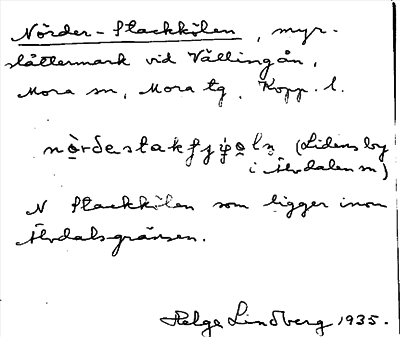 Nörder-Stackkölen, myr-
slåttermark vid Vällingån,
Mora sn, Mora tg, Kopp. l.
(Lidens by
i Älvdalen sn)
N Stackkölen som ligger inom
Älvdalsgränsen.
Helge Lindberg 1935.